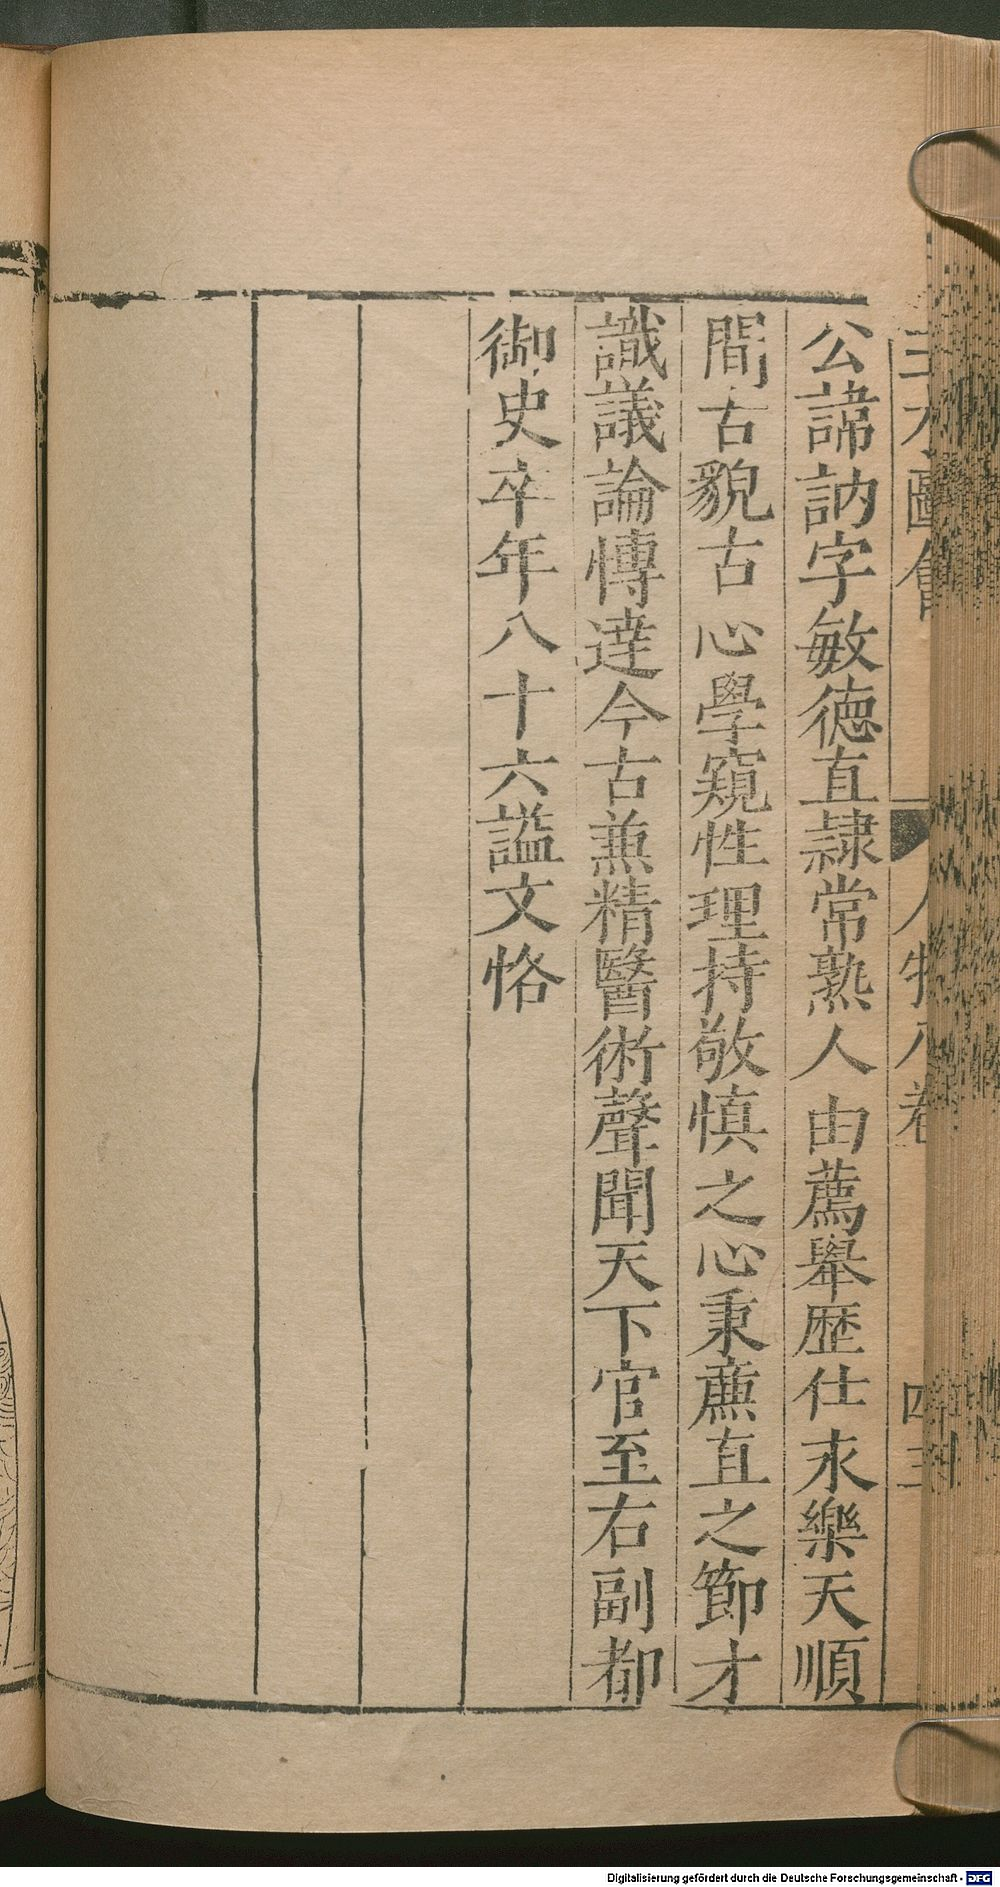 三才圖會 人物八卷 四十三
公諱訥字敏德直隷常熟人由薦舉歴仕永樂天順
間古貌古心學窺性理持敬慎之心秉亷直之節才
識議論慱達今古兼精醫術聲聞天下官至右副都
御史卒年八十六謚文恪
Digitalisierung gefördert durch die Deutsche Forschungsgemeinschaft - DFG